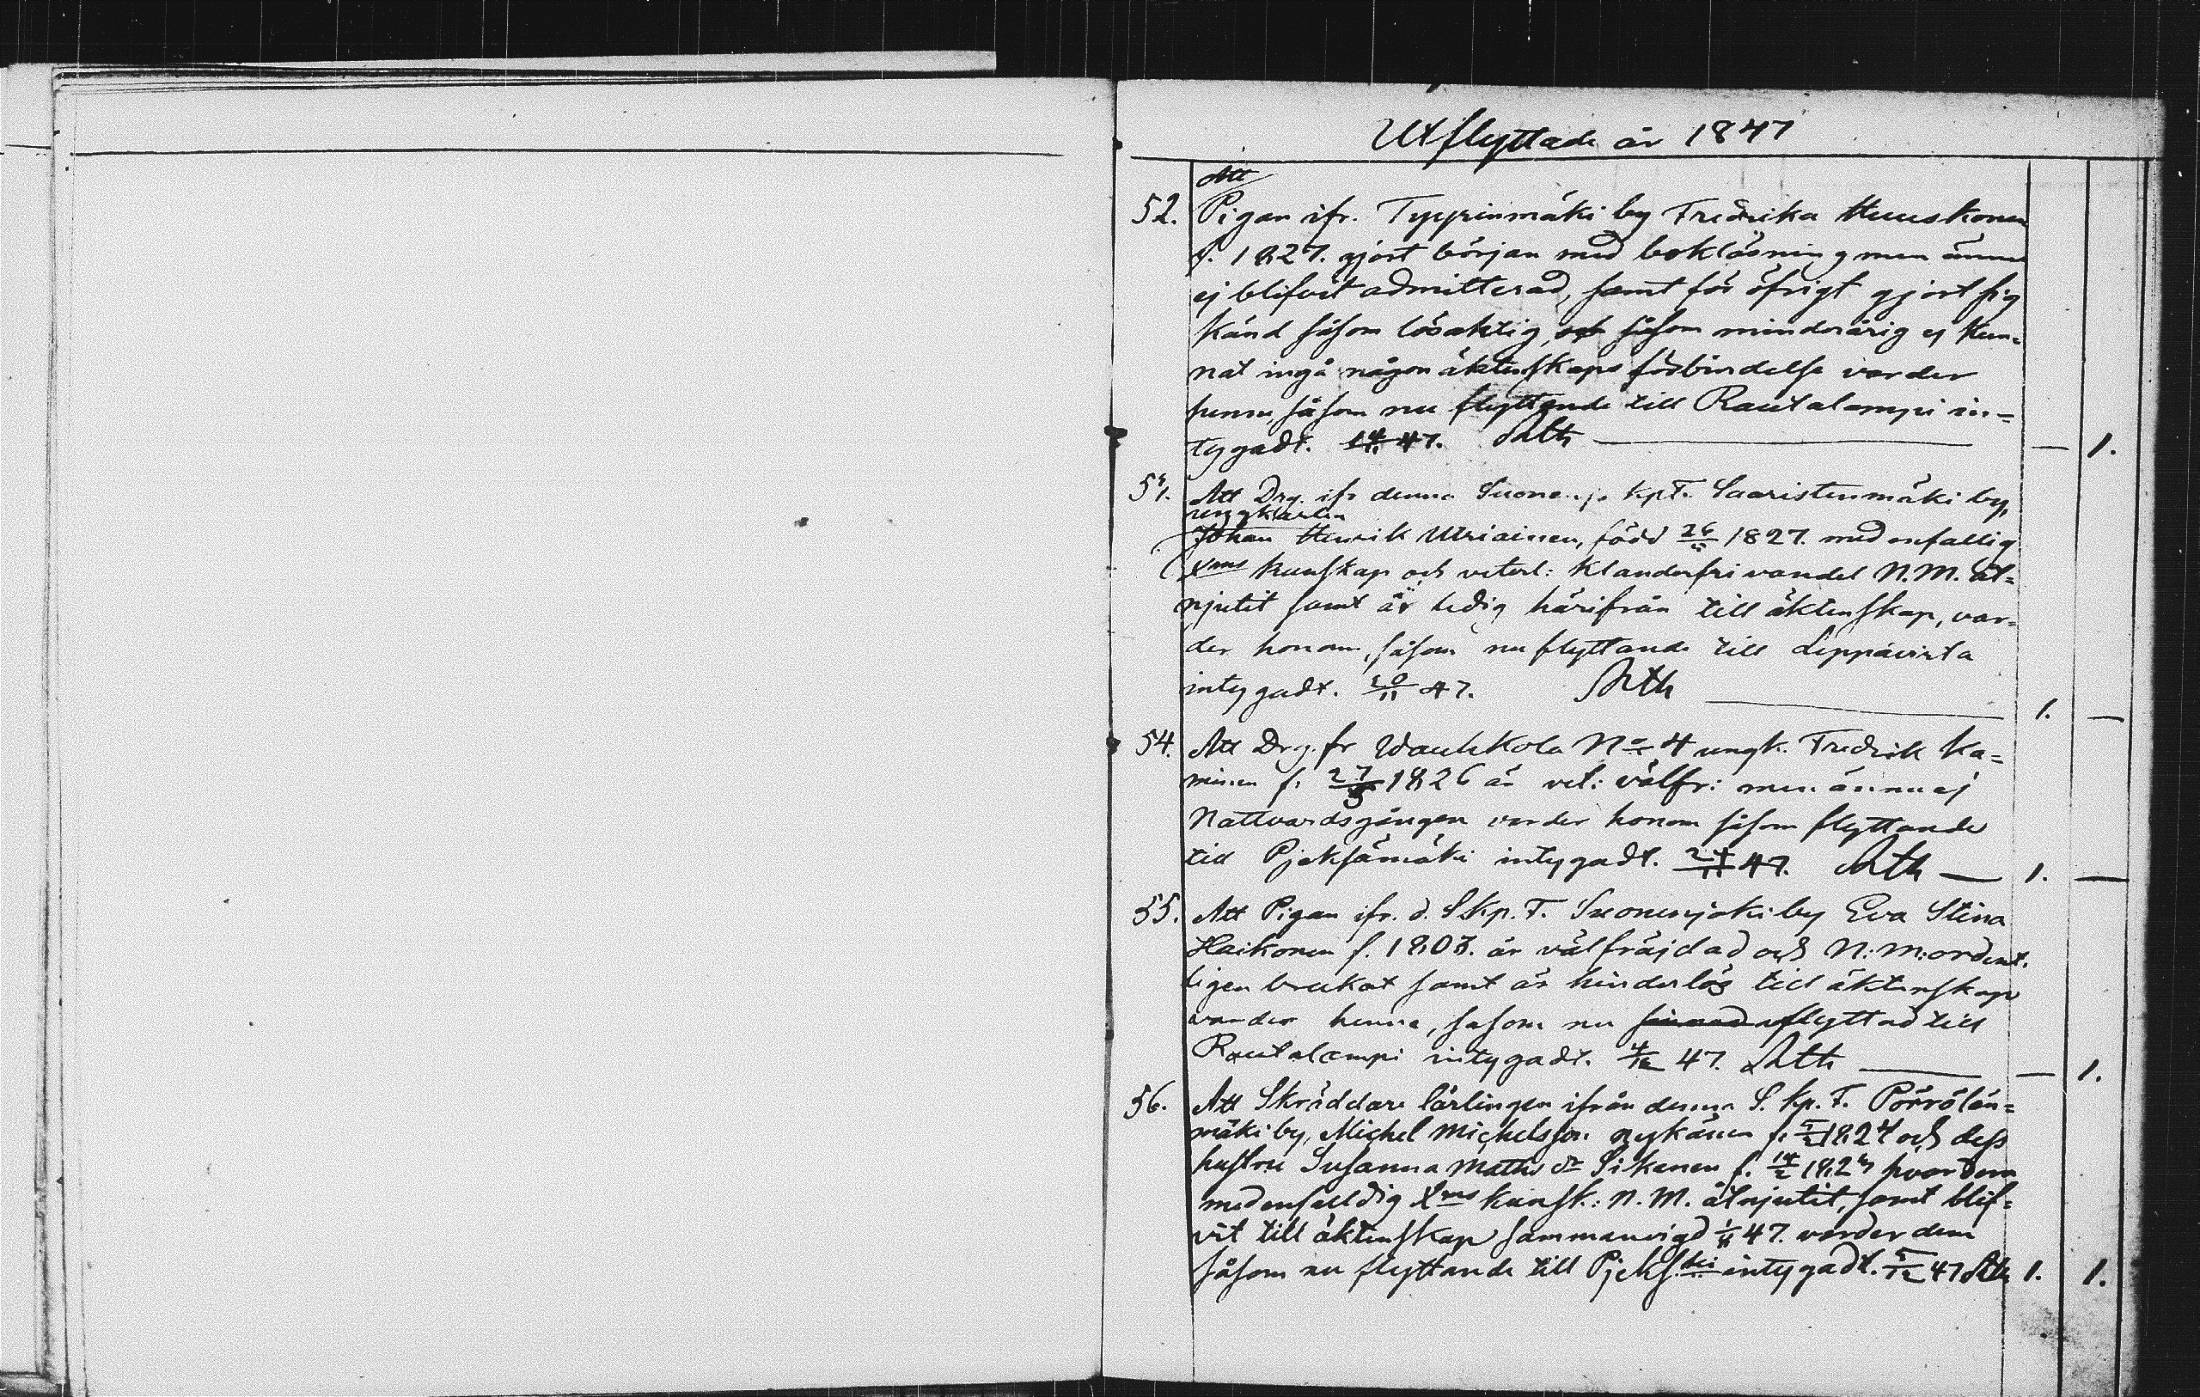 Utflyttade år 1847
Att
52. Pigan ifr. Typpinmäki by Fredrika Huuskonen
f. 1827. gjort början med bokläsning men ännu
ej blifvit admitterad, samt för öfrigt gjort sig
känd såsom lösaktig, och såsom minderårig ej kun=
nat ingå någon äktenskaps förbindelse varder
henne, såsom nu flyttande till Rautalampi in=
tygadt. 14/11 47. — 1.
Att Drg. ifr denna Kpt. Saaristenmäki by,
ungkarlen
Johan Henrik född 26 1827. med enfallig
Xms kunskap och veterl: klanderfri vandel N.M. åt=
njutit samt är ledig härifrån till äktenskap, var=
der honom, såsom nu flyttande till Leppävirta
intygadt. 20/11 47. 1. —
54. Att Drg. fr Wauhkola No 4 ungk. Fredrik Ka=
minen f. 27/3 1826 är vel: välfr: men ännu ej
Nattvardsgången varder honom såsom flyttande
till Pjeksämäki intygadt. 24/11 47. 1. —
55. Att Pigan ifr. d. Skp. T. Suonenjoki by Eva Stina
Haikonen f. 1808. är välfräjdad och N:M: ordent=
ligen brukat samt är hinderlös till äktenskap
varder henne, såsom nu flyttad till
Rautalampi intygadt. 4/12 47. — 1.
56. Att Skräddare lärlingen ifrån denna S. Kp. T. Pörölän=
mäki by, Michel Michelsson f. 5/2 1824 och dess
hustru Susanna Matts dr Sikanen f. 14/2 hvar
med enfalldig Xms kunsk: N. M. åtnjutit, samt blif=
vit till äktenskap sammanvigd 1/11 47. varder dem
såsom nu flyttande till Pjeks.ki intygadt. 5/12 47 1. 1.